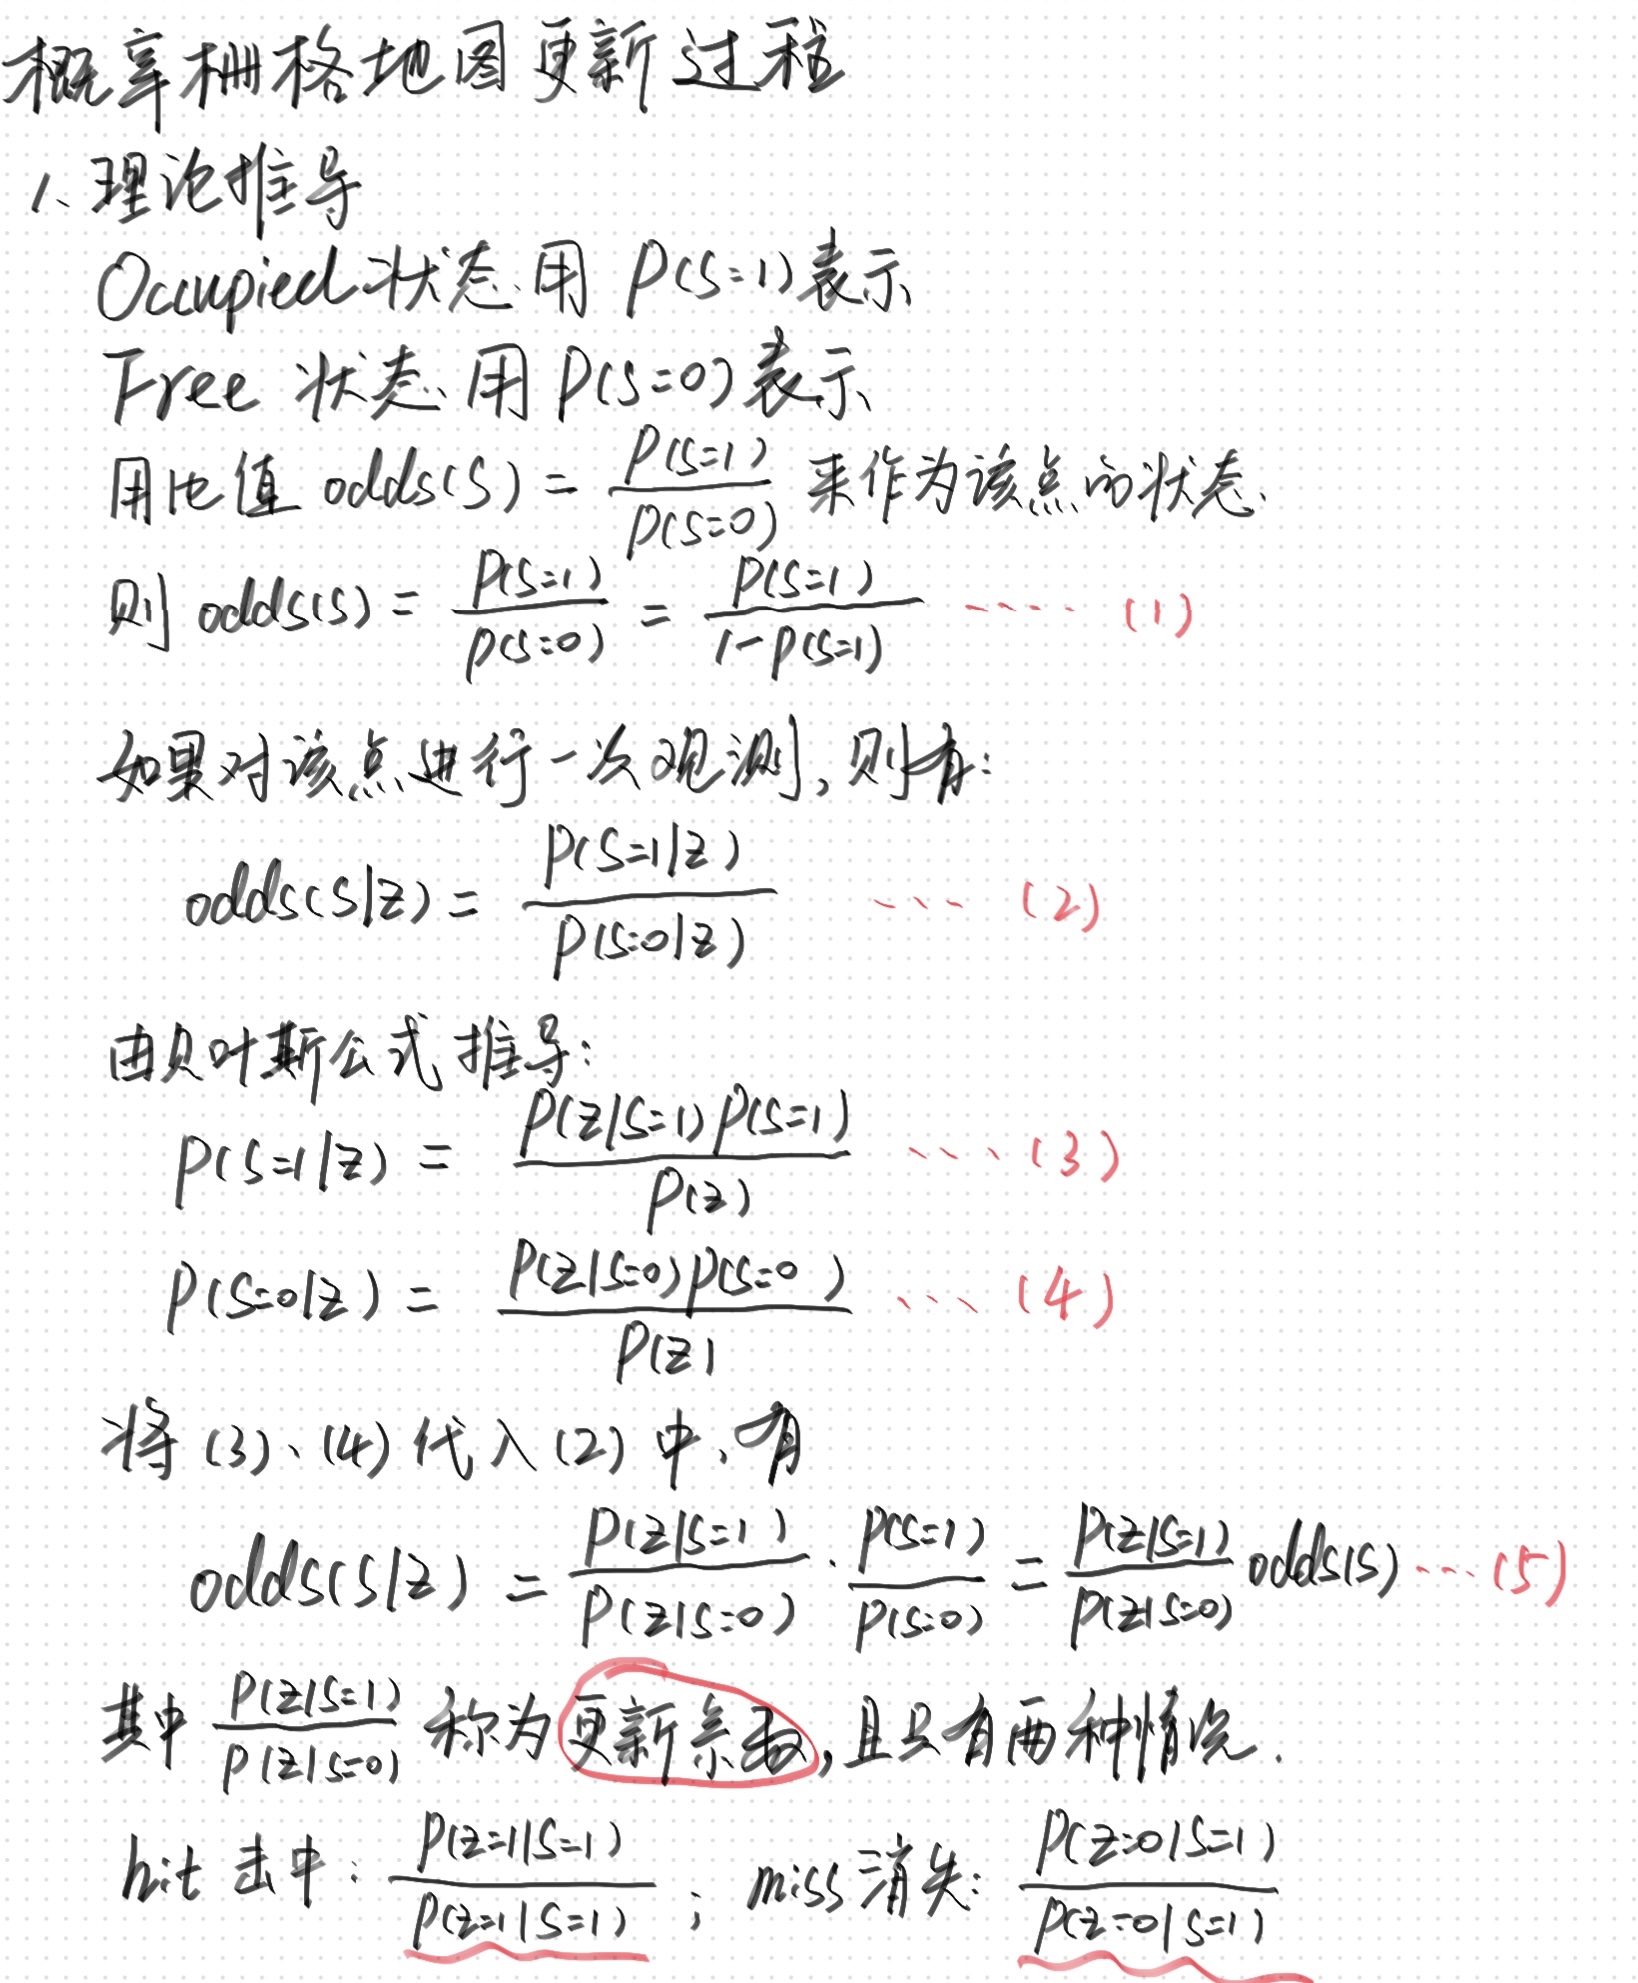 概率栅格地图更新过程
1、理论推导
Occupied状态用 P(S=1)表示
Free 状态用 P(S=0)表示
用比值 odds(S) = P(S=1)/P(S=0) 来作为该点的状态.
则 odds(S) = P(S=1)/P(S=0) = P(S=1)/(1-P(S=1)) ····· (1)
如果对该点进行一次观测,则有:
odds(S|Z) = P(S=1|Z)/P(S=0|Z) ···· (2)
由贝叶斯公式推导:
P(S=1|Z) = P(Z|S=1)P(S=1)/P(Z) ···· (3)
P(S=0|Z) = P(Z|S=0)P(S=0)/P(Z) ···· (4)
将 (3)、(4) 代入 (2) 中,有
odds(S|Z) = P(Z|S=1)/P(Z|S=0) · P(S=1)/P(S=0) = P(Z|S=1)/P(Z|S=0) odds(S) ···· (5)
其中 P(Z|S=1)/P(Z|S=0) 称为更新系数,且只有两种情况.
hit 击中: P(Z=1|S=1)/P(Z=1|S=1) ; miss 消失: P(Z=0|S=1)/P(Z=0|S=1)